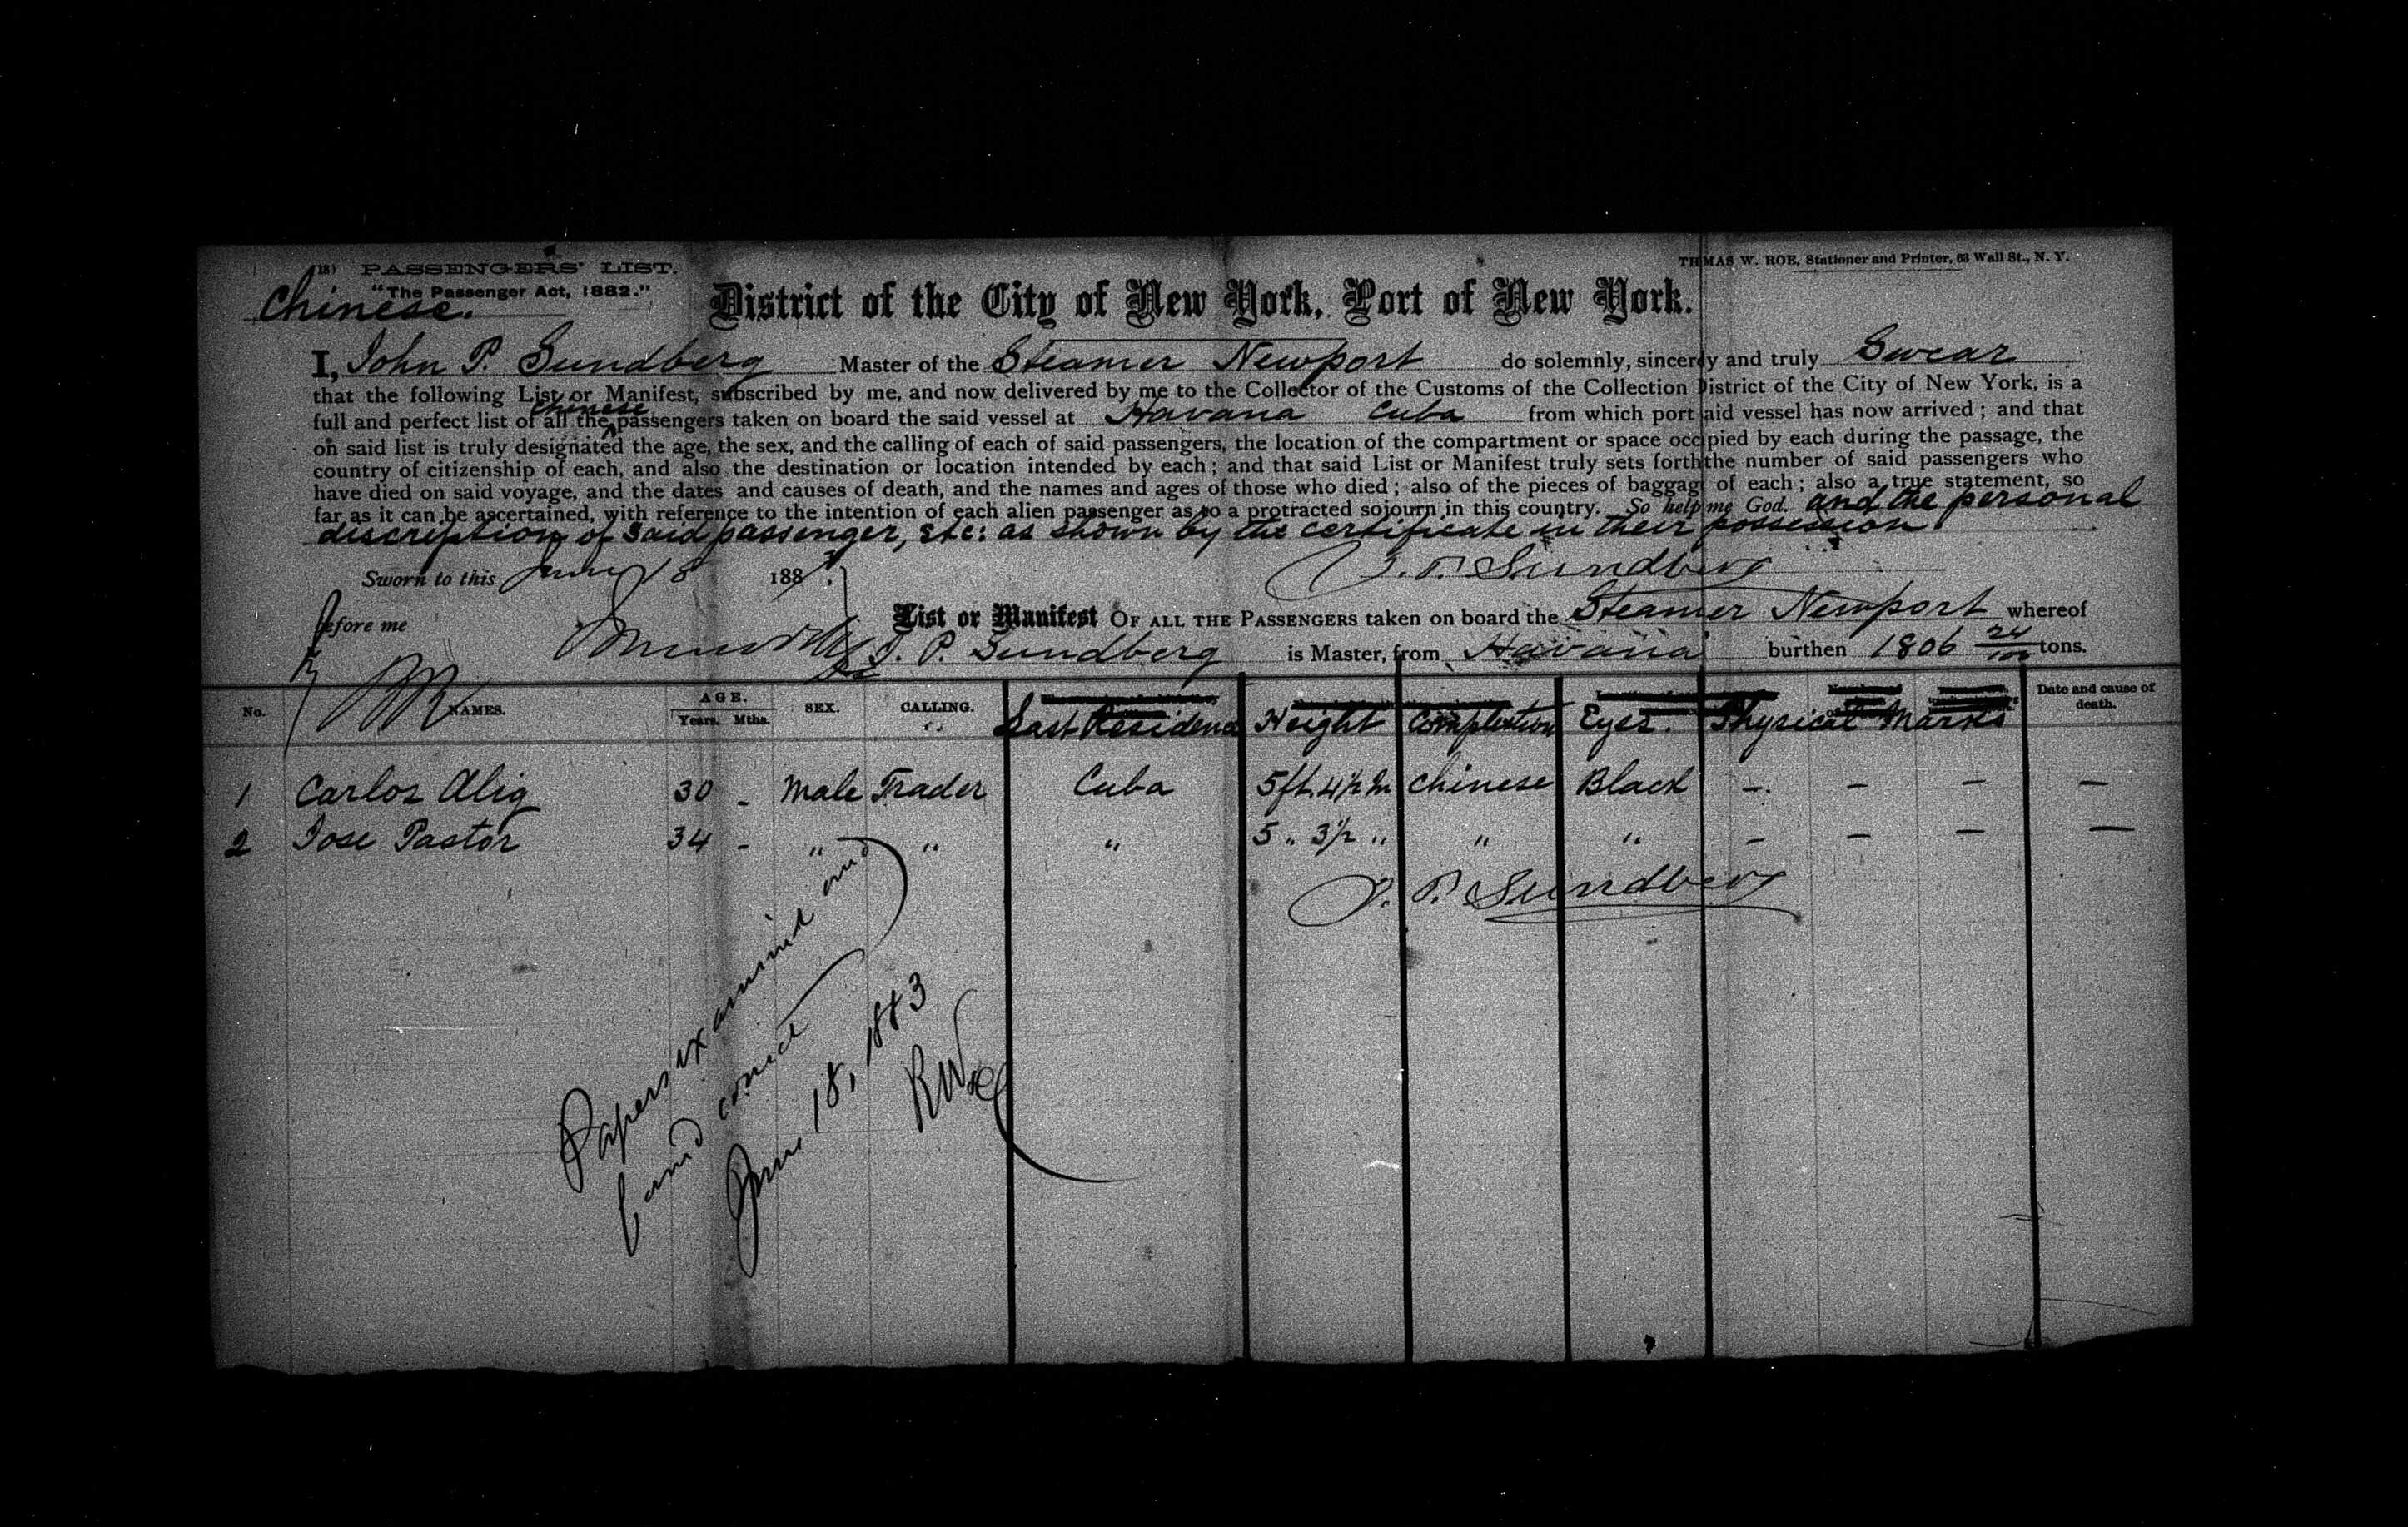 PASSENGERS' LIST.
THOMAS W. ROE, Stationer and Printer, 63 Wall St., N. Y.
"The Passenger Act, 1882."
Chinese.
District of the City of New York, Port of New York.
I, John P. Sundberg Master of the Steamer Newport do solemnly, sincerely and truly Swear
that the following List or Manifest, subscribed by me, and now delivered by me to the Collector of the Customs of the Collection District of the City of New York, is a
full and perfect list of all the Chinese passengers taken on board the said vessel at Havana Cuba from which port said vessel has now arrived; and that
on said list is truly designated the age, the sex, and the calling of each of said passengers, the location of the compartment or space occupied by each during the passage, the
country of citizenship of each, and also the destination or location intended by each; and that said List or Manifest truly sets forth the number of said passengers who
have died on said voyage, and the dates and causes of death, and the names and ages of those who died; also of the pieces of baggage of each; also a true statement, so
far as it can be ascertained, with reference to the intention of each alien passenger as to a protracted sojourn in this country. So help me God. and the personal
discription of said passenger, etc: as shown by the certificate in their possession
Sworn to this June 18 188
J. P. Sundberg
before me
List or Manifest OF ALL THE PASSENGERS taken on board the Steamer Newport whereof
J. P. Sundberg is Master, from Havana burthen 1806 24/100 tons.
No. NAMES. AGE. Years. Mths. SEX. CALLING. Last Residence Height Complextion Eyes. Physical Marks Date and cause of death.
1 Carlos Alig 30 - Male Trader Cuba 5 ft. 4 1/2 In Chinese Black - - - -
2 Jose Pastor 34 - " " " 5 " 3 1/2 " " " - - - -
J. P. Sundberg
Papers examined and
found correct
June 18, 1883